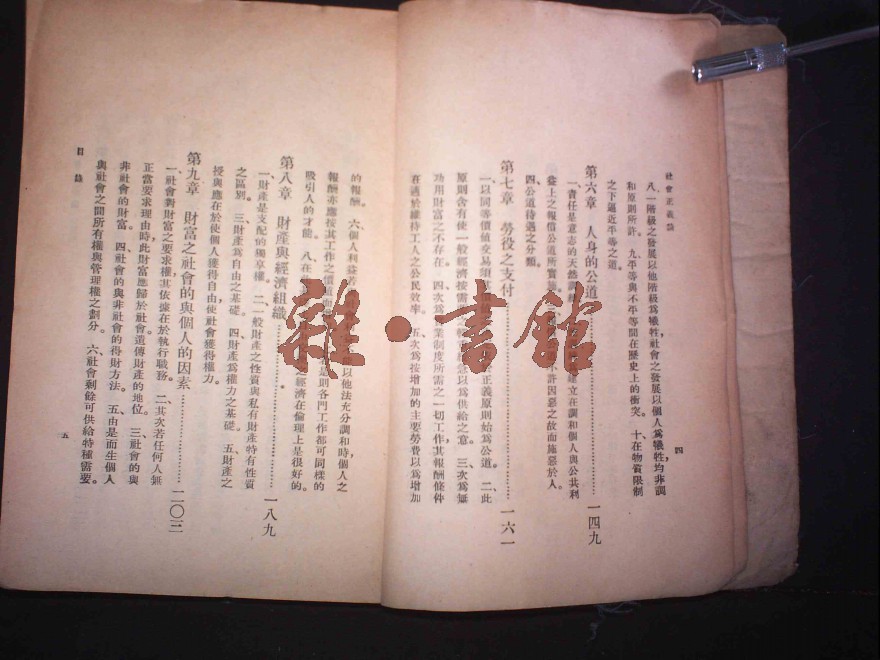 社會正義論
八、一階級之發展以他階級爲犧牲、社會之發展以個人爲犧牲、均非調
和原則所許。 九、平等與不平等間在歷史上的衝突。 十、在物質限制
之下逼近平等之道
第六章 人身的公道 一四九
一、責任是意志的天然 建立在調和個人與公共利
益上之報償公道 不許因惡之故而施惡於人。
四、公道待遇之分類。
第七章 勞役之支付 一六一
一、以同等價值交易 正義原則始爲公道。 二、此
原則含有使一般經濟按需 以爲供給之意。 三、次爲無
功用財富之不存在 四、次爲 業制度所需之一切工作其報酬條件
在適於維持工人之公民效率。 五、次爲按增加的主要勞費以爲增加
四
的報酬。 六、個人利益若 以他法充分調和時個人之
報酬亦應按其工作之價值 是則各門工作都可同樣的
吸引人的才能。 八、在 之經濟在倫理上是很好的。
第八章 財產與經濟組織 一八九
一、財產是支配的獨享權。 二、一般財產之性質與私有財產特有性質
之區別。 三、財產爲自由之基礎。 四、財產爲權力之基礎。 五、財產之
授與應在於使個人獲得自由使社會獲得權力。
第九章 財富之社會的與個人的因素 二〇三
一、社會對財富之要求權、其依據在於執行職務。 二、其次若任何人無
正當要求理由時此財富應歸於社會。遺傳財產的地位。 三、社會的與
非社會的財富。 四、社會的與非社會的得財方法。 五、由是而生個人
與社會之間所有權與管理權之劃分。 六、社會剩餘可供給特種需要。
目錄
五
雜·書館